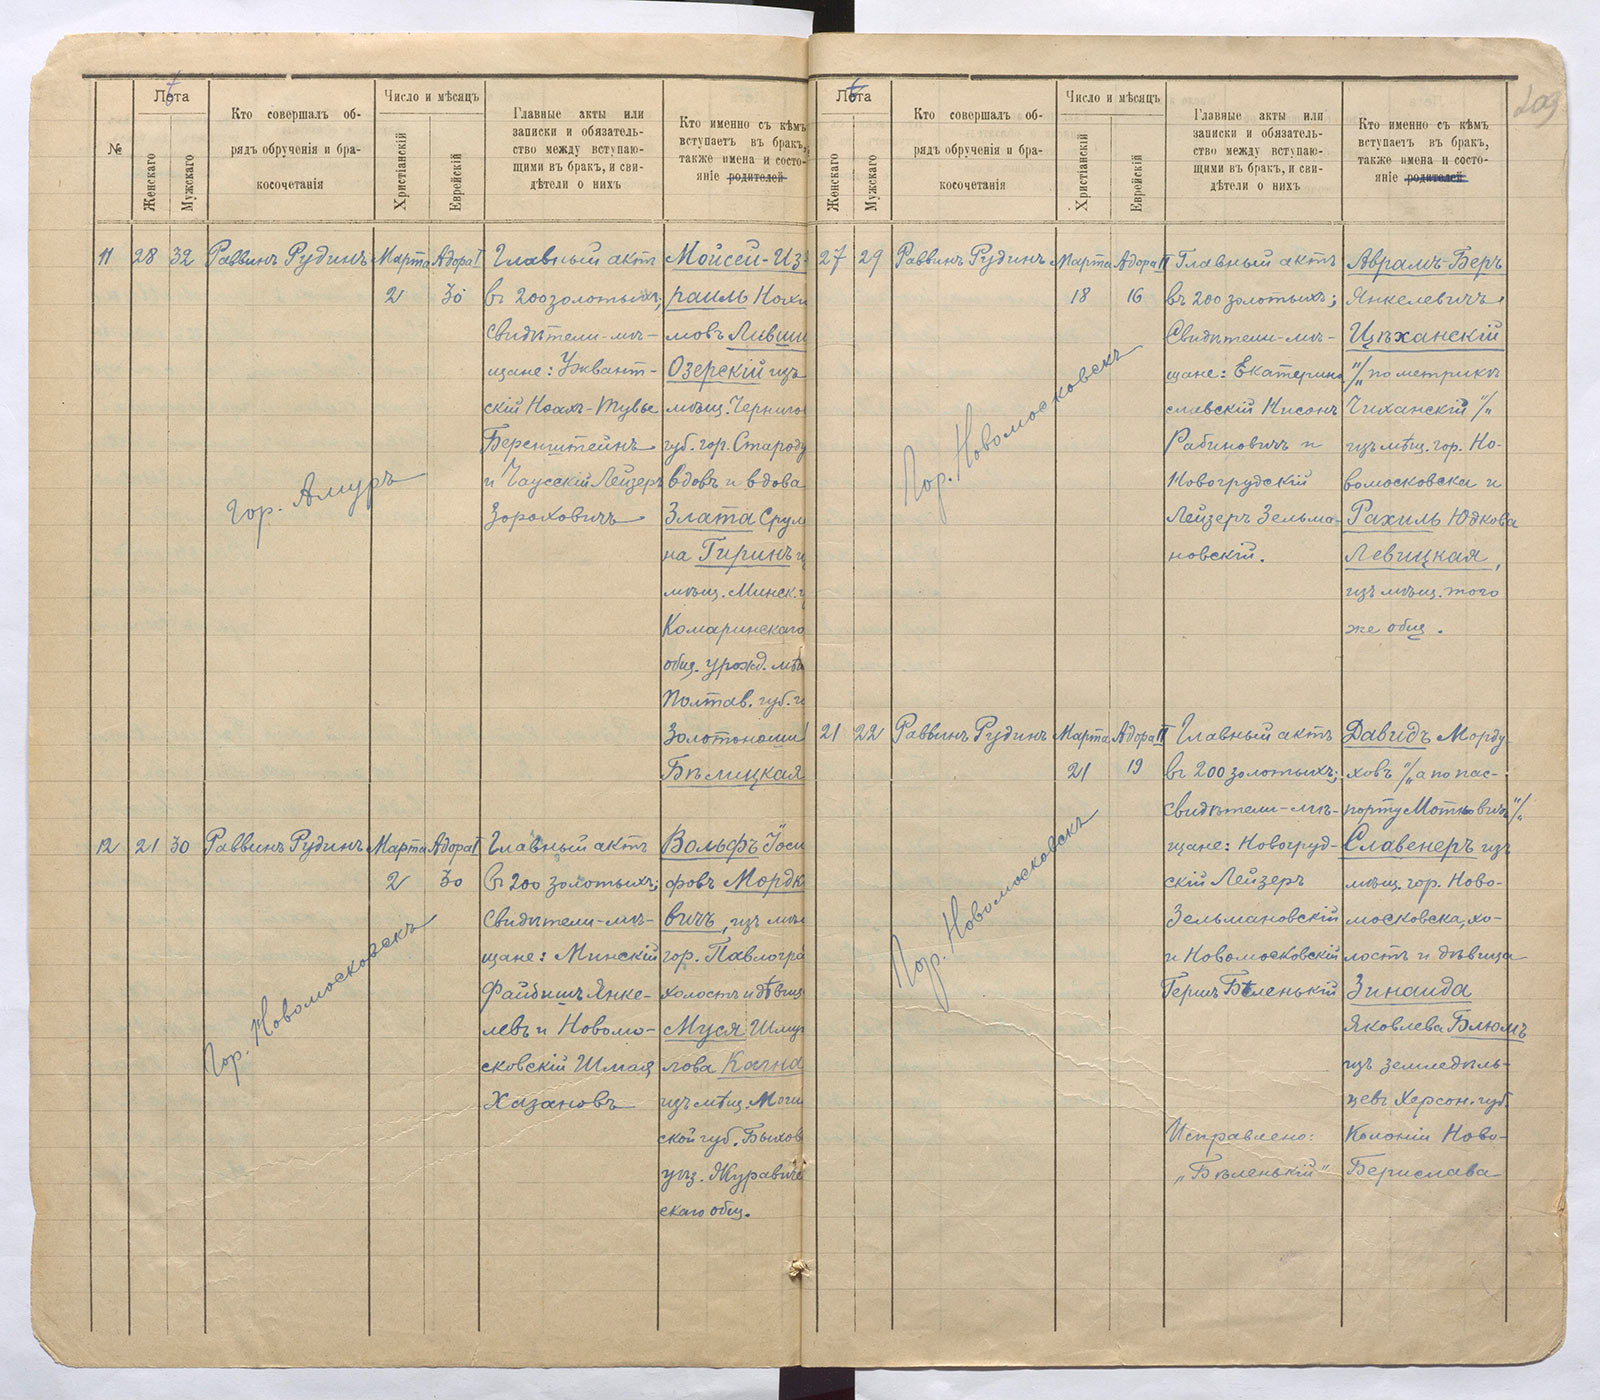 №
Лѣта
Женскаго
Мужскаго
Кто совершалъ об-
рядъ обрученія и бра-
косочетанія
Число и мѣсяцъ
Христіанскій
Еврейскій
Главные акты или
записки и обязатель-
ство между вступаю-
щими въ бракъ, и сви-
дѣтели о нихъ
Кто именно съ кѣмъ
вступаетъ въ бракъ,
также имена и состо-
яніе родителей
11
28
32
Раввинъ Рудинъ
гор. Амуръ
Марта
2
Адора I
30
Главный актъ
въ 200 золотыхъ;
Свидѣтели-мѣ-
щане: Ужвент-
скій Ноахъ-Тувье
Беренштейнъ
и Чаусскій Лейзеръ
Зороховичъ
Мойсей-Из-
раиль Нохи
мовъ Ливши
Озерскій изъ
мѣщ. Черниго
губ. гор. Староду
вдовъ и вдова
Злата Срул
на Гиринъ и
мѣщ. Минск. г
Комаринскаго
общ. урожд. мѣщ
Полтав. губ. г
Золотоноши
Бѣлицкая
12
21
30
Раввинъ Рудинъ
Гор. Новомосковскъ
Марта
2
Адора I
30
Главный актъ
въ 200 золотыхъ;
Свидѣтели-мѣ-
щане: Минскій
Файбишъ Янке-
левъ и Новомо-
сковскій Шмая
Хазановъ
Вольфъ Іоси
фовъ Мордк
вичъ, изъ мѣщ
гор. Павлогра
холостъ и дѣвиц
Муся Шму
лова Кагна
изъ мѣщ. Моги
ской губ. Быхов
уѣз. Журавиче
скаго общ.
Лѣта
Женскаго
Мужскаго
Кто совершалъ об-
рядъ обрученія и бра-
косочетанія
Число и мѣсяцъ
Христіанскій
Еврейскій
Главные акты или
записки и обязатель-
ство между вступаю-
щими въ бракъ, и сви-
дѣтели о нихъ
Кто именно съ кѣмъ
вступаетъ въ бракъ,
также имена и состо-
яніе родителей
27
29
Раввинъ Рудинъ
Гор. Новомосковскъ
Марта
18
Адора II
16
Главный актъ
въ 200 золотыхъ;
Свидѣтели-мѣ-
щане: Екатерино
славскій Нисонъ
Рабиновичъ и
Новогрудскій
Лейзеръ Зельма-
новскій.
Аврамъ-Беръ
Янкелевичъ
Цѣханскій
"/„ по метрикѣ
Чиханскій "/„
изъ мѣщ. гор. Но-
вомосковска и
Рахиль Юдкова
Левицкая,
изъ мѣщ. того
же общ.
21
22
Раввинъ Рудинъ
Гор. Новомосковскъ
Марта
21
Адора II
19
Главный актъ
въ 200 золотыхъ;
свидѣтели-мѣ-
щане: Новогруд-
скій Лейзеръ
Зельмановскій
и Новомосковскій
Гершъ Бѣленькій
Исправлено:
„Бѣленькій"
Давидъ Морду
ховъ "/„ а по пас-
порту Мотьковичъ "/„
Славенеръ изъ
мѣщ. гор. Ново-
московска, хо-
лостъ и дѣвица
Зинаида
Яковлева Блюмъ
изъ земледѣль-
цевъ Херсон. губ.
Колоніи Ново-
Берислава